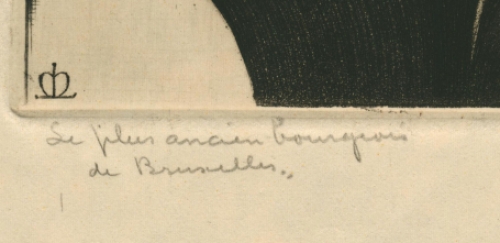 Le plus ancien bourgeois
de Bruxelles.,